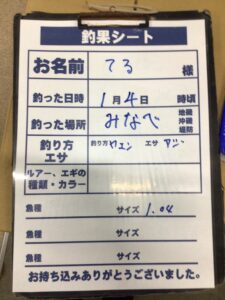 釣果シート
お名前 てる 様
釣った日時 1月4日 時頃
釣った場所 みなべ 地磯 沖磯 堤防
釣り方 エサ 釣り方 ウエン エサ アジ
ルアー、エギの種類・カラー
魚種 サイズ 1.04
魚種 サイズ
魚種 サイズ
お持ち込みありがとうございました。